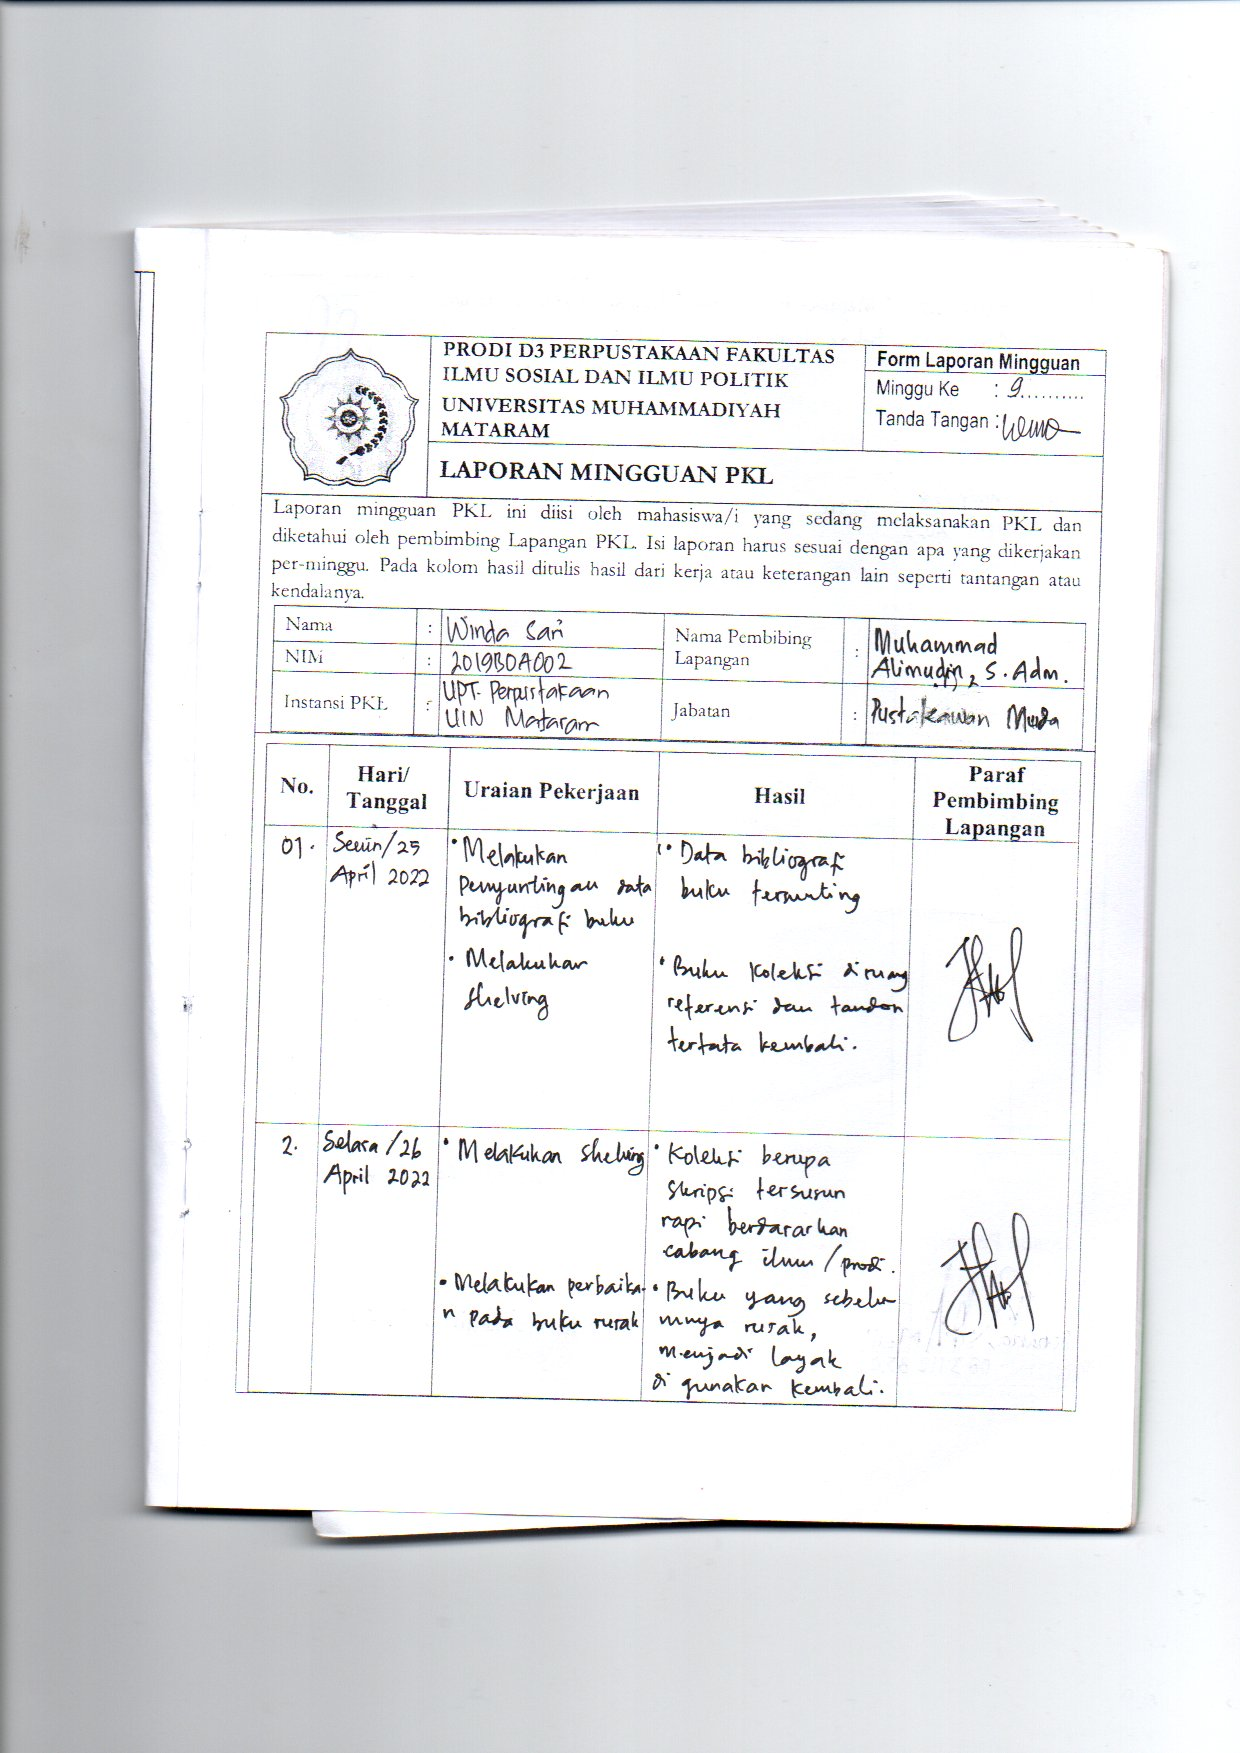 PRODI D3 PERPUSTAKAAN FAKULTAS
ILMU SOSIAL DAN ILMU POLITIK
UNIVERSITAS MUHAMMADIYAH
MATARAM
LAPORAN MINGGUAN PKL
Form Laporan Mingguan
Minggu Ke : 9..........
Tanda Tangan :
Laporan mingguan PKL ini diisi oleh mahasiswa/i yang sedang melaksanakan PKL dan
diketahui oleh pembimbing Lapangan PKL. Isi laporan harus sesuai dengan apa yang dikerjakan
per-minggu. Pada kolom hasil ditulis hasil dari kerja atau keterangan lain seperti tantangan atau
kendalanya.
Nama : Winda Sari
NIM : 2019B0A002
Instansi PKL : UPT. Perpustakaan
UIN Mataram
Nama Pembibing
Lapangan : Muhammad
Alimudin, S. Adm.
Jabatan : Pustakawan Muda
No.
Hari/
Tanggal
Uraian Pekerjaan
Hasil
Paraf
Pembimbing
Lapangan
01.
Senin/25
April 2022
• Melakukan
Penyuntingan data
bibliografi buku
• Melakukan
Shelving
• Data bibliografi
buku tersunting
• Buku Koleksi diruang
referensi dan tandon
tertata kembali.
2.
Selasa/26
April 2022
• Melakukan Shelving
• Melakukan perbaika-
n pada buku rusak
• Koleksi berupa
Skripsi tersusun
rapi berdasarkan
cabang ilmu/prodi.
• Buku yang sebelu-
mnya rusak,
menjadi layak
di gunakan kembali.